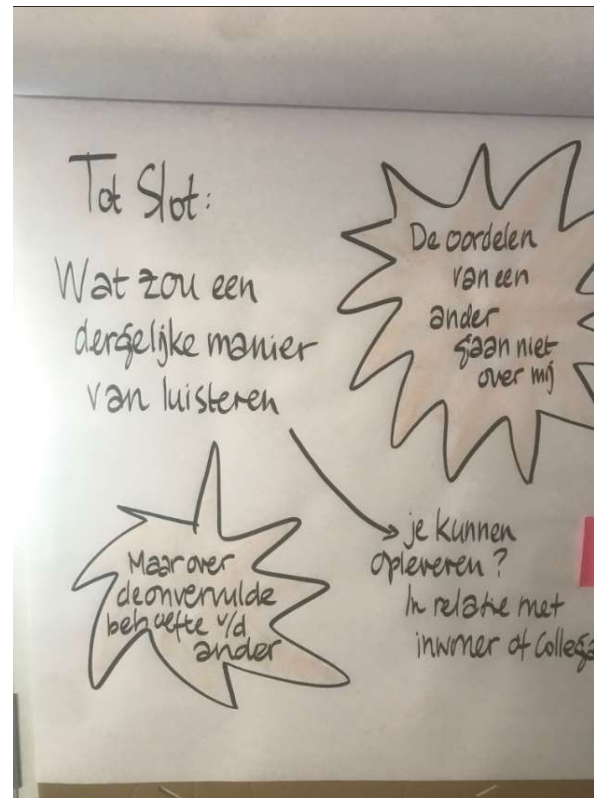 Tot Slot:
Wat zou een
dergelijke manier
van luisteren
je kunnen
opleveren?
In relatie met
inwoner of Collega
De oordelen
van een
ander
gaan niet
over mij
Maar over
de onvervulde
behoefte v/d
ander